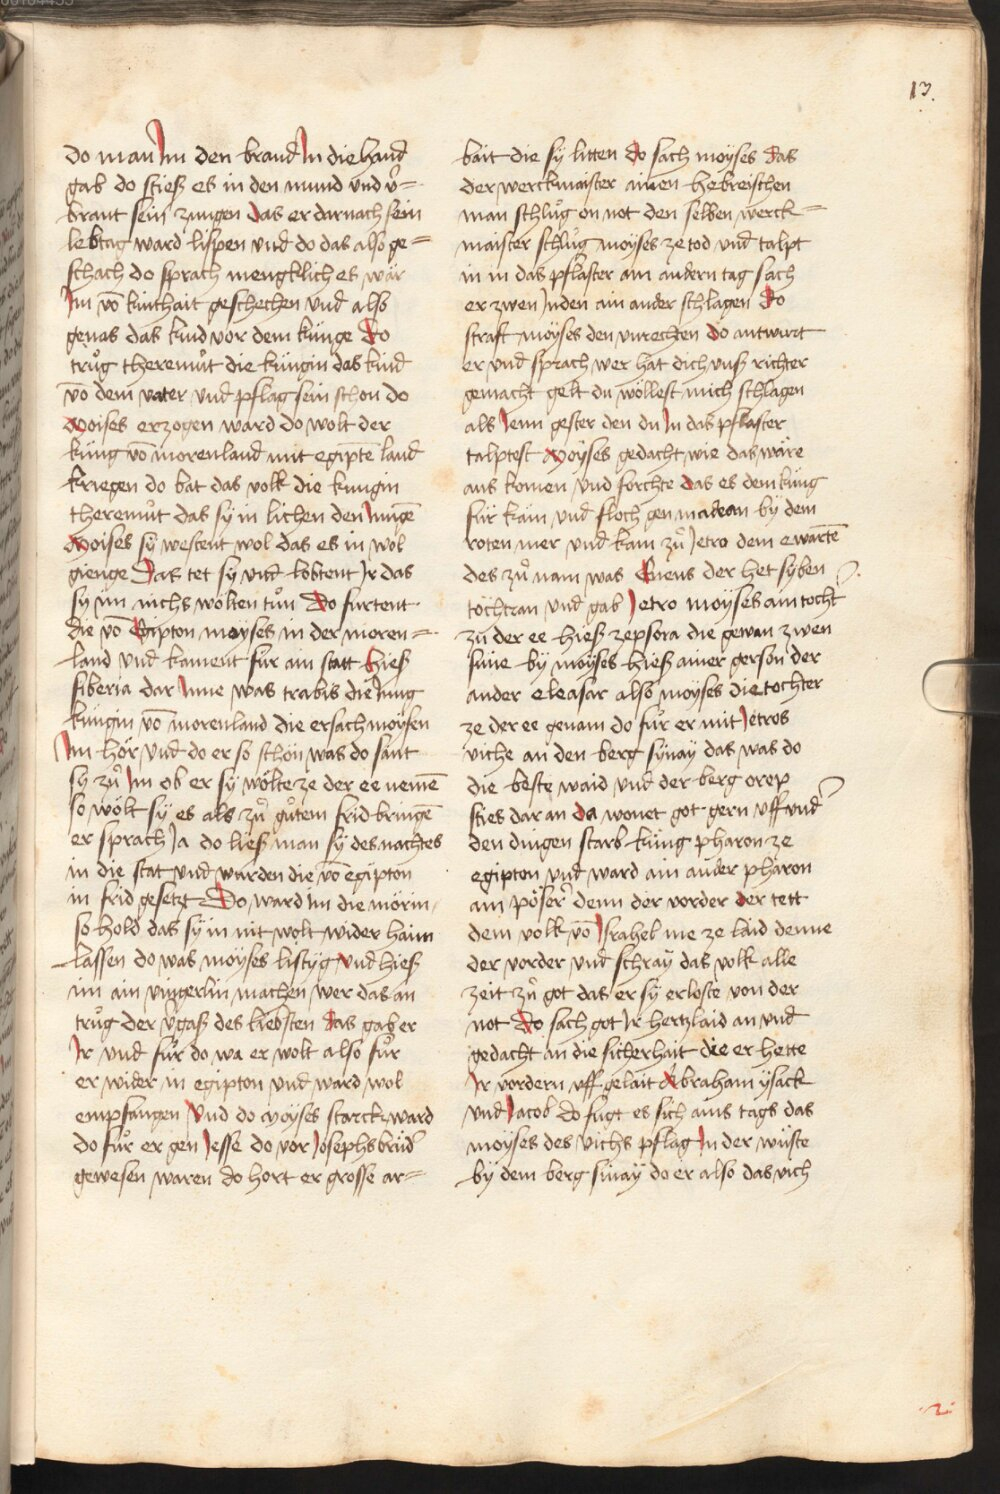 13.
do man Im den brand In die hand
gab do stieß es in den mund vnd v̾=
brant sein zungen Das er darnach sein
lebtag ward lispen vnd do das also ge=
schach do sprach mengklich es wär
Im vō kinthait geschechen vnd also
genas das kind vor dem künge Do
trůg theremůt die küngin das kind
vō dem vater vnd pflag sein schon do
Moises erzogen ward do wolt der
küng vō morenland mit egiptē land
kriegen do bat das volk die kungin
theremůt das sÿ in lichen den Jungē
Moises sÿ westent wol das es in wol
gienge Das tet sÿ vnd lobtent Jr das
sy im nichs wölten tůn Do furtent
die vō Egipton moyses in der moren=
land vnd kament fur ain statt hieß
siberia dar Inne was trabis die Jung
kungin vō morenland die ersach moÿsen
Im hör vnd do er so schön was do sant
sy zů Im ob er sy wölte ze der ee nemē
so wölt sÿ es als zů gůtem frid bringē
er sprach Ja do ließ man sÿ des nachtes
in die stat vnd wurden die vō egipton
in frid gesetzt Do ward Im die mörin
so hold das sÿ in nit wolt wider haim
lassen do was moÿses listÿg vnd hieß
im ain vingerlin machen wer das an
trůg der v̾gaß des liebsten das gab er
Ir vnd fůr do wa er wolt also fůr
er wider in egipton vnd ward wol
empfangen Vnd do Moÿses starck ward
do fůr er gen Jesse do vor Josephs brüd̾
gewesen waren do hort er grosse ar=
bait die sÿ litten do sach moÿses das
der werckmaister ainen hebreischen
man schlůg on not den selben werck=
maister schlůg moÿses ze tod vnd talpt
in in das pflaster am andern tag sach
er zwen Juden ain ander schlagen do
straft moÿses den vnrechten do antwurt
er vnd sprach wer hat dich vnß richter
gemacht gelt du wöllest mich schlagen
als Jenn gester den du In das pflaster
talptest Moÿses gedacht wie das wäre
aus komen vnd forchte das es dem küng
für käm vnd floch gen madean bÿ dem
roten mer vnd kam zů Jetro dem ewartē
des zů nam was Enens der het syben
töchtran vnd gab Jetro moÿses ain tocht̾
zů der ee hieß zepsora die gewan zwen
süne bÿ moÿses hieß ainer gerson der
ander eleasar also moÿses die tochter
ze der ee genam do fůr er mit Jetros
viche an den berg sÿnay das was do
die beste waid vnd der berg orep
sties dar an da wonet got gern vff vnd̾
den dingen starb küng pharon ze
egipton vnd ward ain ander pharon
ain pöser̾ denn der vorder der tett
dem volk vō Israhel me ze laid denne
der vorder vnd schraÿ das volk alle
zeit zů got das er sÿ erloste von der
not Do sach got Ir hertzlaid an vnd
gedacht an die sicherhait die er hette
Ir vordern vff gelait Abraham ÿsack
vnd Jacob do fugt es sich ains tags das
moÿses des vichs pflag In der wüste
bÿ dem berg sinaÿ do er also das vich